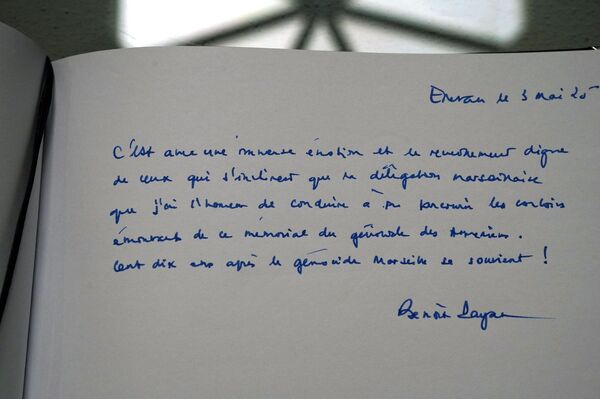 Erevan le 3 mai 25
C'est avec une immense émotion et le recueillement digne
de ceux qui s'inclinent que la délégation marseillaise
que j'ai l'honneur de conduire a pu parcourir les
émouvant de ce mémorial du génocide des Arméniens.
Cent dix ans après le génocide Marseille se souvient !
Benoît Payan